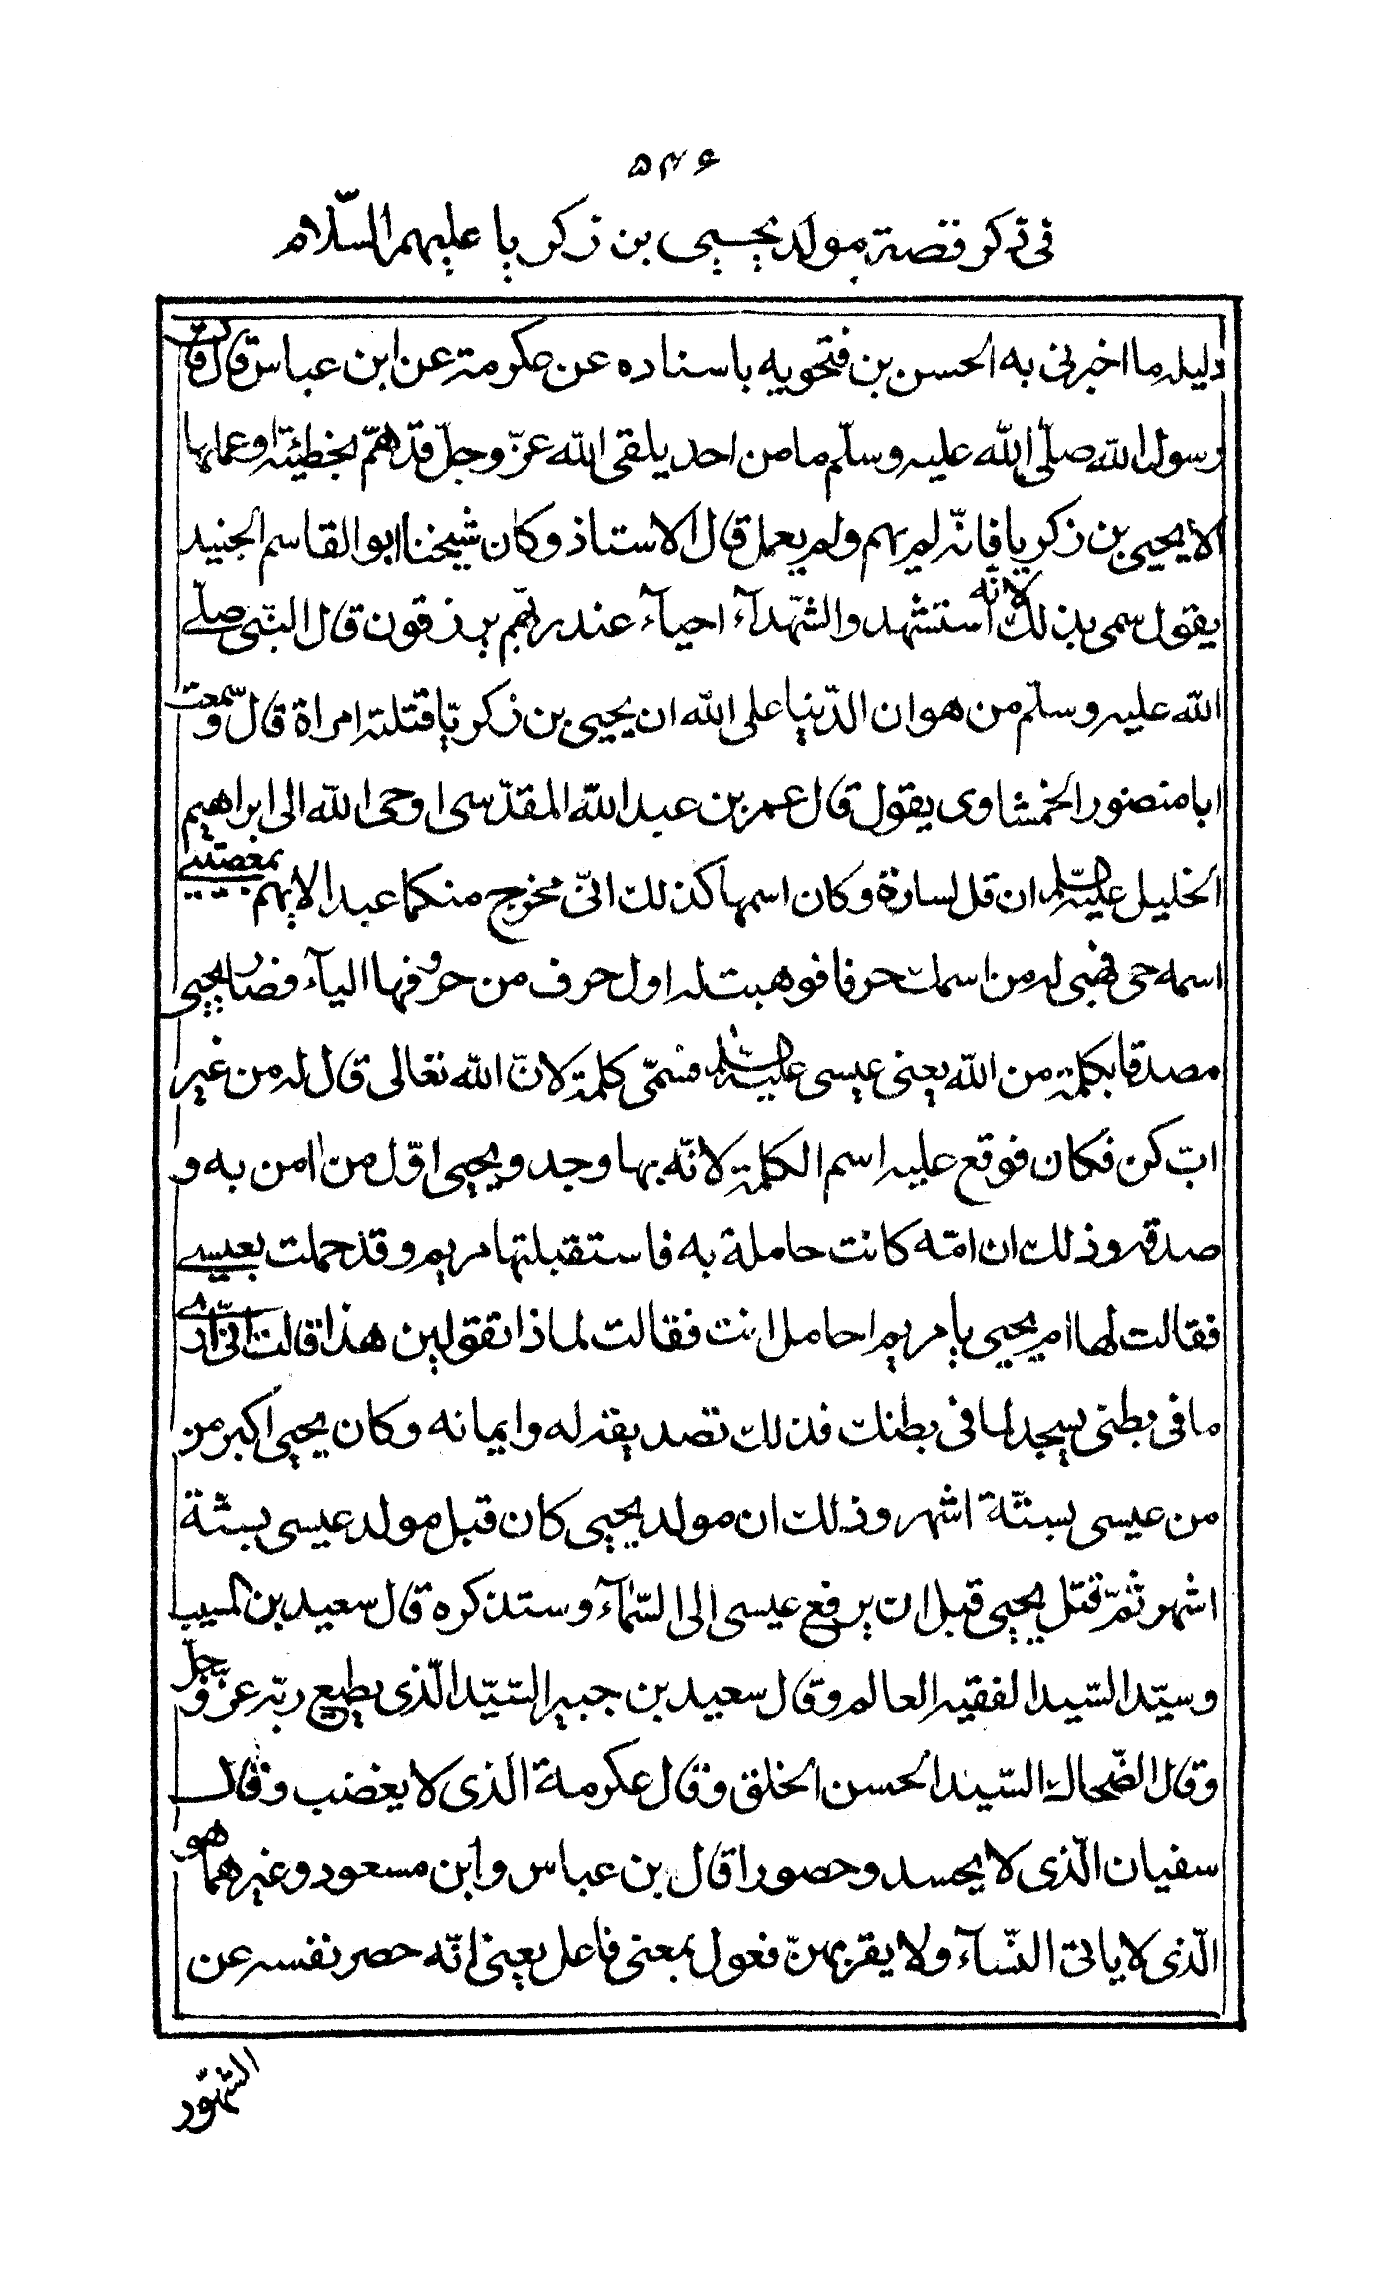 ۵۴۶
فى ذكر قصة مولد يحيى بن زكريا عليهم السّلام
دليله ما اخبرنى به الحسن بن فتحويه باسناده عن عكرمة عن ابن عباس قال قال
رسول الله صلّى الله عليه وسلّم ما من احد يلقى الله عزّ وجلّ قد همّ بخطيئة او عملها
الا يحيى بن زكريا فانّه لم يهم ولم يعمل قال الاستاذ وكان شيخنا ابو القاسم الجنيد
يقول سمى بذلك لانّه استشهد والشّهدآء احيآء عند ربّهم يرزقون قال النبّى صلّى
الله عليه وسلّم من هوان الدّنيا على الله ان يحيى بن زكريّا قتلته امراة قال وسّمعت
ابا منصور الخمشاوى يقول قال عمر بن عبد الله المقدّسى اوحى الله الى ابراهيم
الخليل عليه السّلم ان قل لسارة وكان اسمها كذلك انّى مخرج منكما عبدا لا يهم بمعصيتى
اسمه حى فهبى له من اسمك حرفا فوهبت له اول حرف من حروفها اليآء فصار يحيى
مصدقا بكلمة من الله يعنى عيسى عليه السّلم فسّمى كلمة لانّ الله تعالى قال له من غير
اب كن فكان فوقع عليه اسم الكلمة لانّه بها وجد ويحيى اوّل من امن به و
صدقه وذلك ان امّه كانت حاملة به فاستقبلتها مريم وقد حملت بعيسى
فقالت لها ام يحيى يا مريم احامل انت فقالت لماذا تقولين هذا قالت انّى ارى
ما فى بطنى يسجد لما فى بطنك فذلك تصديقه له وايمانه وكان يحيى اكبر من
من عيسى بستّة اشهر وذلك ان مولد يحيى كان قبل مولد عيسى بستّة
اشهر ثمّ قتل يحيى قبل ان يرفع عيسى الى السّمآء وستذكره قال سعيد بن المسيب
وسيّدا السّيد الفقيه العالم وقال سعيد بن جبير السّيّد الّذى يطيع ربّه عزّ وجلّ
وقال الضّحاك السّيد الحسن الخلق وقال عكرمة الذى لا يغضب وقال
سفيان الّذى لا يحسد وحصورا قال بن عباس وابن مسعود وغيرهما هو
الّذى لا ياتى النّسآء ولا يقربهنّ فعول بمعنى فاعل يعنى انّه حصر نفسه عن